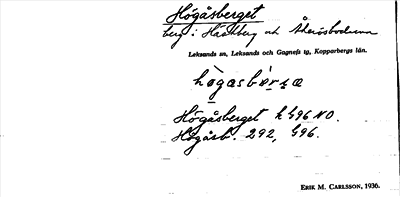 Högåsberget
berg i Häckberg och Åkersbodarna
Leksands sn, Leksands och Gagnefs tg, Kopparbergs län.
Högåsberget k G96 NO.
Högåsb. 292, G96.
ERIK M. CARLSSON, 1936.